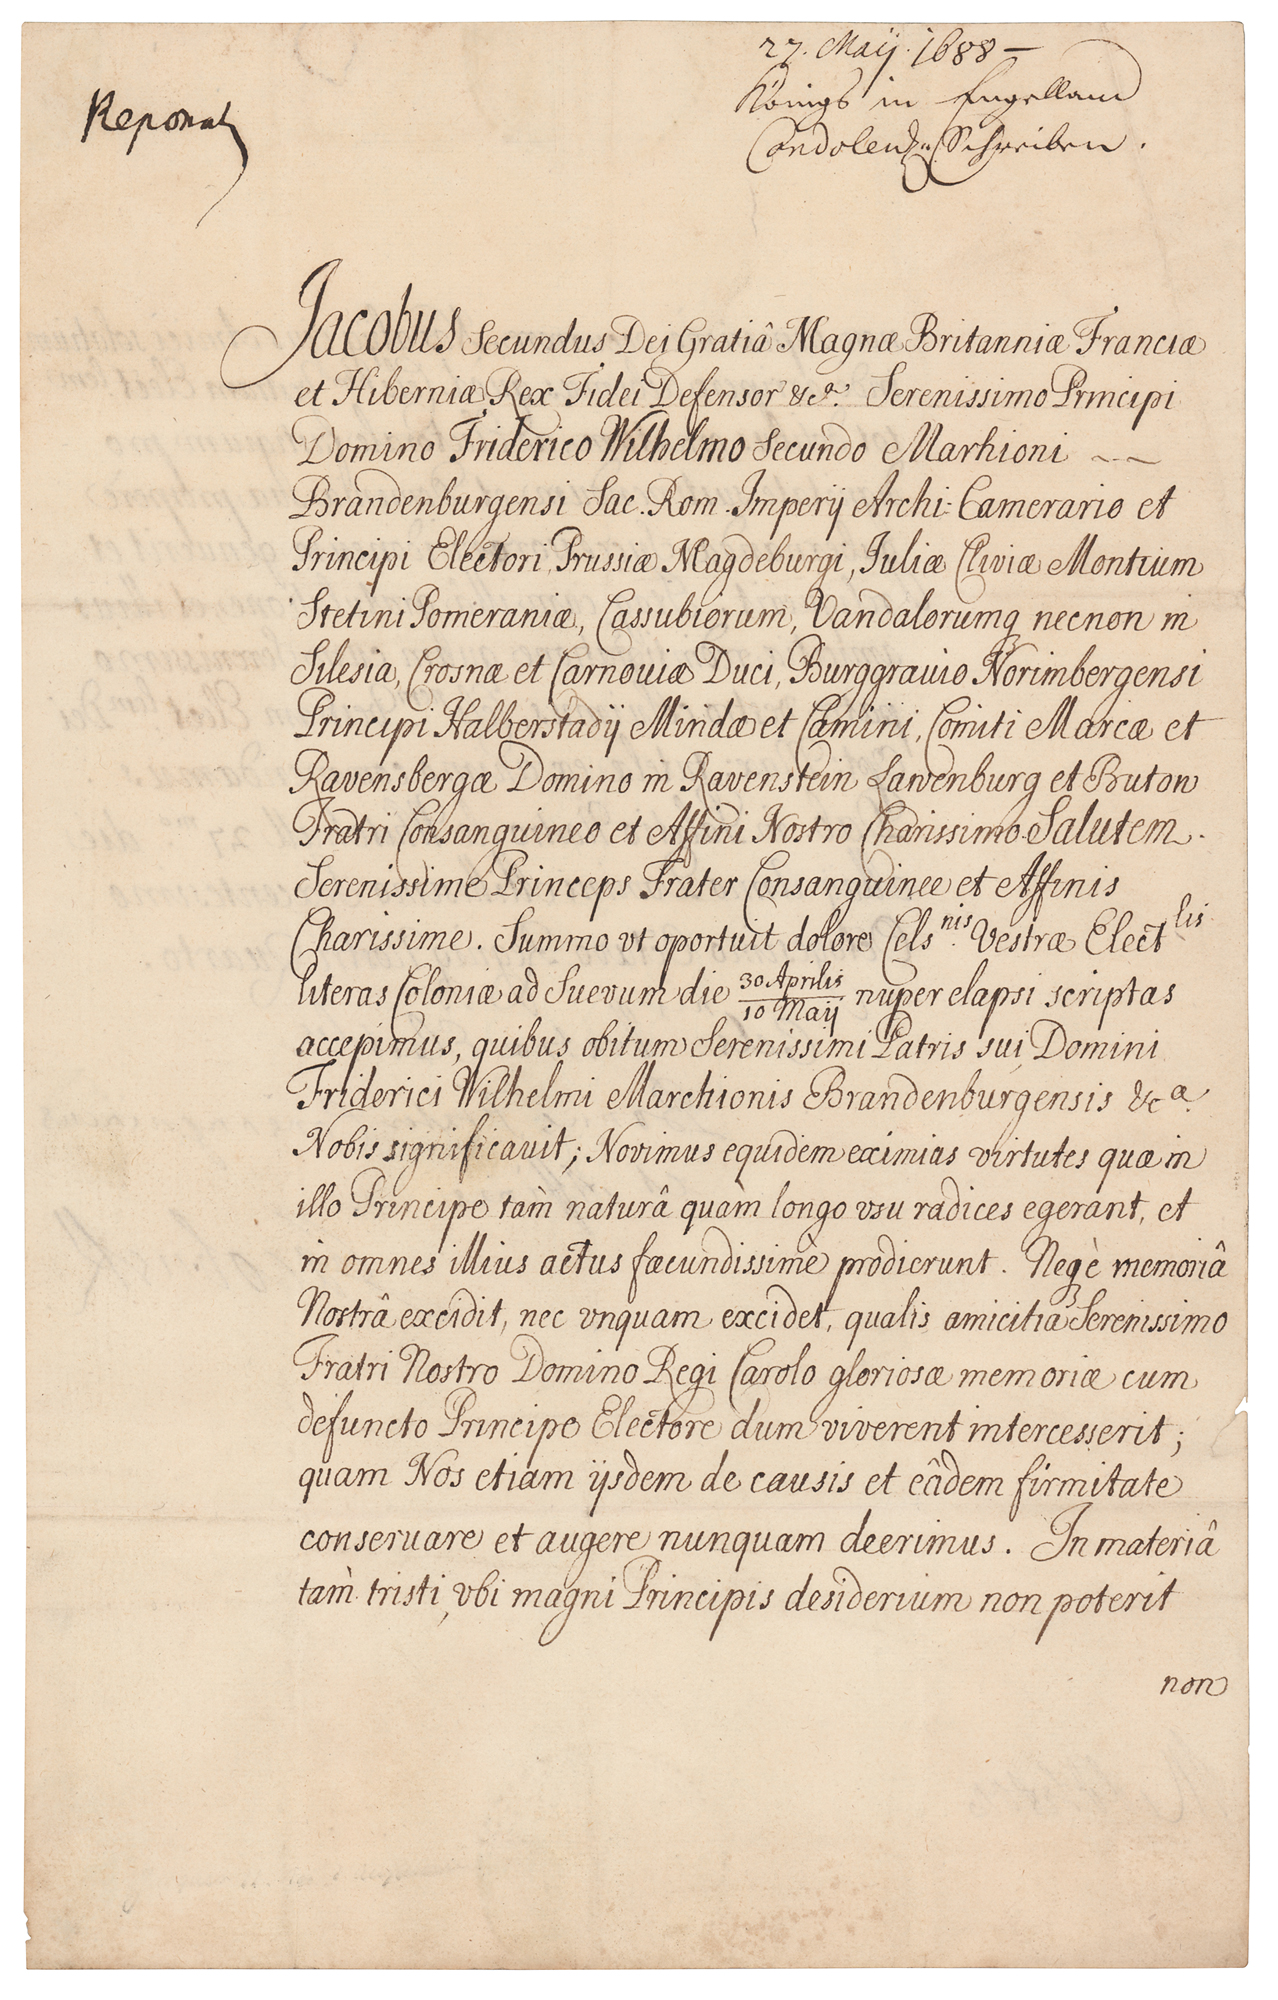 27. Maij. 1688 –
Königs in Engelland
Condolentz Schreiben.
Reponat
Jacobus Secundus Dei Gratiâ Magnæ Britanniæ Franciæ
et Hiberniæ Rex Fidei Defensor &cª. Serenissimo Principi
Domino Friderico Wilhelmo Secundo Marhioni
Brandenburgensi Sac. Rom. Imperij Archi: Camerario et
Principi Electori, Prussiæ Magdeburgi, Juliæ Cliviæ Montium
Stetini Pomeraniæ, Cassubiorum, Vandalorumq necnon in
Silesia, Crosnæ et Carnoviæ Duci, Burggrauio Norimbergensi
Principi Halberstadij Mindæ et Camini, Comiti Marcæ et
Ravensbergæ Domino in Ravenstein Lawenburg et Buton
Fratri Consanguineo et Affini Nostro Charissimo Salutem.
Serenissime Princeps Frater Consanguinee et Affinis
Charissime. Summo vt oportuit dolore Cels.nis Vestræ Electlis
literas Coloniæ ad Suevum die 30 Aprilis/10 Maij nuper elapsi scriptas
accepimus, quibus obitum Serenissimi Patris sui Domini
Friderici Wilhelmi Marchionis Brandenburgensis &cª.
Nobis significauit; Novimus equidem eximias virtutes quæ in
illo Principe tam̀ naturâ quàm longo vsu radices egerant, et
in omnes illius actus fæcundissimè prodierunt. Neqꝫè memoriâ
Nostrâ excidit, nec vnquam excidet, qualis amicitia Serenissimo
Fratri Nostro Domino Regi Carolo gloriosæ memoriæ cum
defuncto Principe Electore dum viverent intercesserit;
quam Nos etiam ijsdem de causis et eâdem firmitate
conseruare et augere nunquam deerimus. In materiâ
tam̀ tristi, vbi magni Principis desiderium non poterit
non